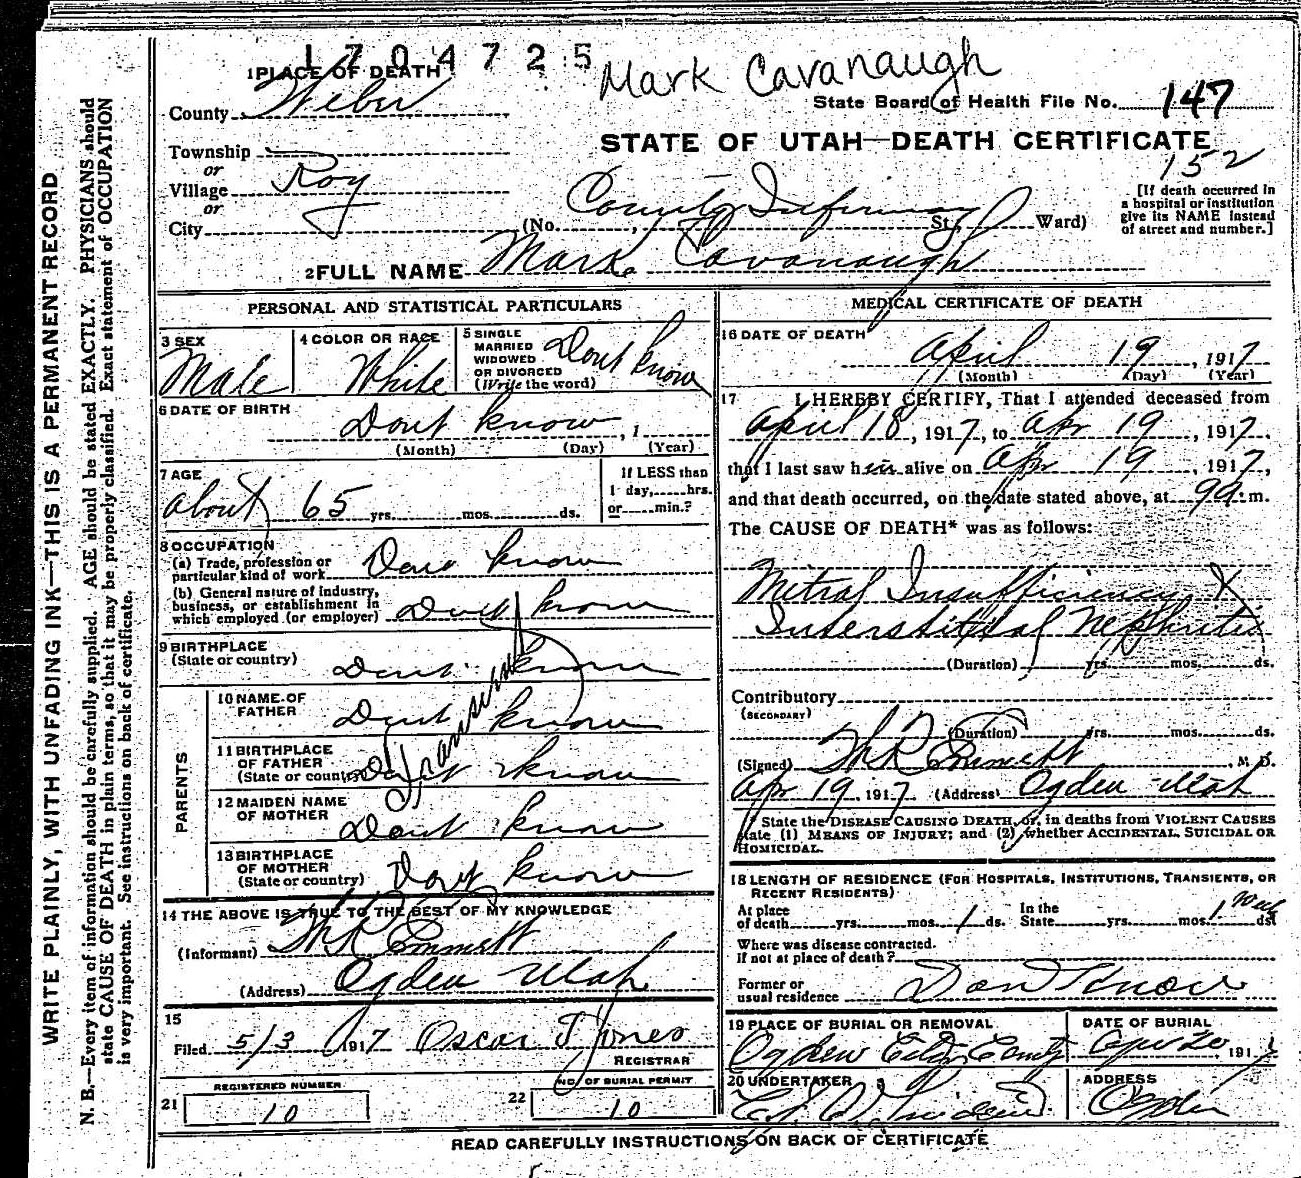 1704725
Mark Cavanaugh
1 PLACE OF DEATH
County Weber
State Board of Health File No. 147
STATE OF UTAH—DEATH CERTIFICATE
152
Township
or
Village Roy
or
City
(No. County Infirmary St. Ward)
[If death occurred in
a hospital or institution
give its NAME instead
of street and number.]
2 FULL NAME Mark Cavanaugh
PERSONAL AND STATISTICAL PARTICULARS
3 SEX
Male
4 COLOR OR RACE
White
5 SINGLE
MARRIED
WIDOWED
OR DIVORCED
(Write the word)
Dont know
6 DATE OF BIRTH
Dont know , 1
(Month) (Day) (Year)
7 AGE
about 65 yrs. mos. ds.
If LESS than
1 day, hrs.
or min.?
8 OCCUPATION
(a) Trade, profession or
particular kind of work Dont know
(b) General nature of industry,
business, or establishment in
which employed (or employer) Dont know
9 BIRTHPLACE
(State or country) Dont know
Transient
PARENTS
10 NAME OF
FATHER Dont know
11 BIRTHPLACE
OF FATHER
(State or country) Dont know
12 MAIDEN NAME
OF MOTHER Dont know
13 BIRTHPLACE
OF MOTHER
(State or country) Dont know
14 THE ABOVE IS TRUE TO THE BEST OF MY KNOWLEDGE
(Informant) Emmett
(Address) Ogden Utah
15
Filed 5/3 1917 Oscar T Jones
REGISTRAR
REGISTERED NUMBER
21 10
NO. OF BURIAL PERMIT
22 10
MEDICAL CERTIFICATE OF DEATH
16 DATE OF DEATH
April 19, 1917
(Month) (Day) (Year)
17 I HEREBY CERTIFY, That I attended deceased from
April 18, 1917, to Apr 19, 1917,
that I last saw him alive on Apr 19, 1917,
and that death occurred, on the date stated above, at 9 a.m.
The CAUSE OF DEATH* was as follows:
Mitral Insufficiency &
Interstitial Nephritis
(Duration) yrs. mos. ds.
Contributory
(SECONDARY)
(Duration) yrs. mos. ds.
(Signed) Emmett, M. D.
Apr 19, 1917 (Address) Ogden Utah
* State the DISEASE CAUSING DEATH, or, in deaths from VIOLENT CAUSES
state (1) MEANS OF INJURY; and (2) whether ACCIDENTAL, SUICIDAL OR
HOMICIDAL.
18 LENGTH OF RESIDENCE (FOR HOSPITALS, INSTITUTIONS, TRANSIENTS, OR
RECENT RESIDENTS)
At place
of death yrs. mos. 1 ds.
In the
State yrs. mos. 1 week ds.
Where was disease contracted.
if not at place of death?
Former or
usual residence Dont know
19 PLACE OF BURIAL OR REMOVAL
Ogden City
DATE OF BURIAL
Apr 20, 1917
20 UNDERTAKER
ADDRESS
Ogden
READ CAREFULLY INSTRUCTIONS ON BACK OF CERTIFICATE
WRITE PLAINLY, WITH UNFADING INK—THIS IS A PERMANENT RECORD
N. B.—Every item of information should be carefully supplied. AGE should be stated EXACTLY. PHYSICIANS should
state CAUSE OF DEATH in plain terms, so that it may be properly classified. Exact statement of OCCUPATION
is very important. See instructions on back of certificate.